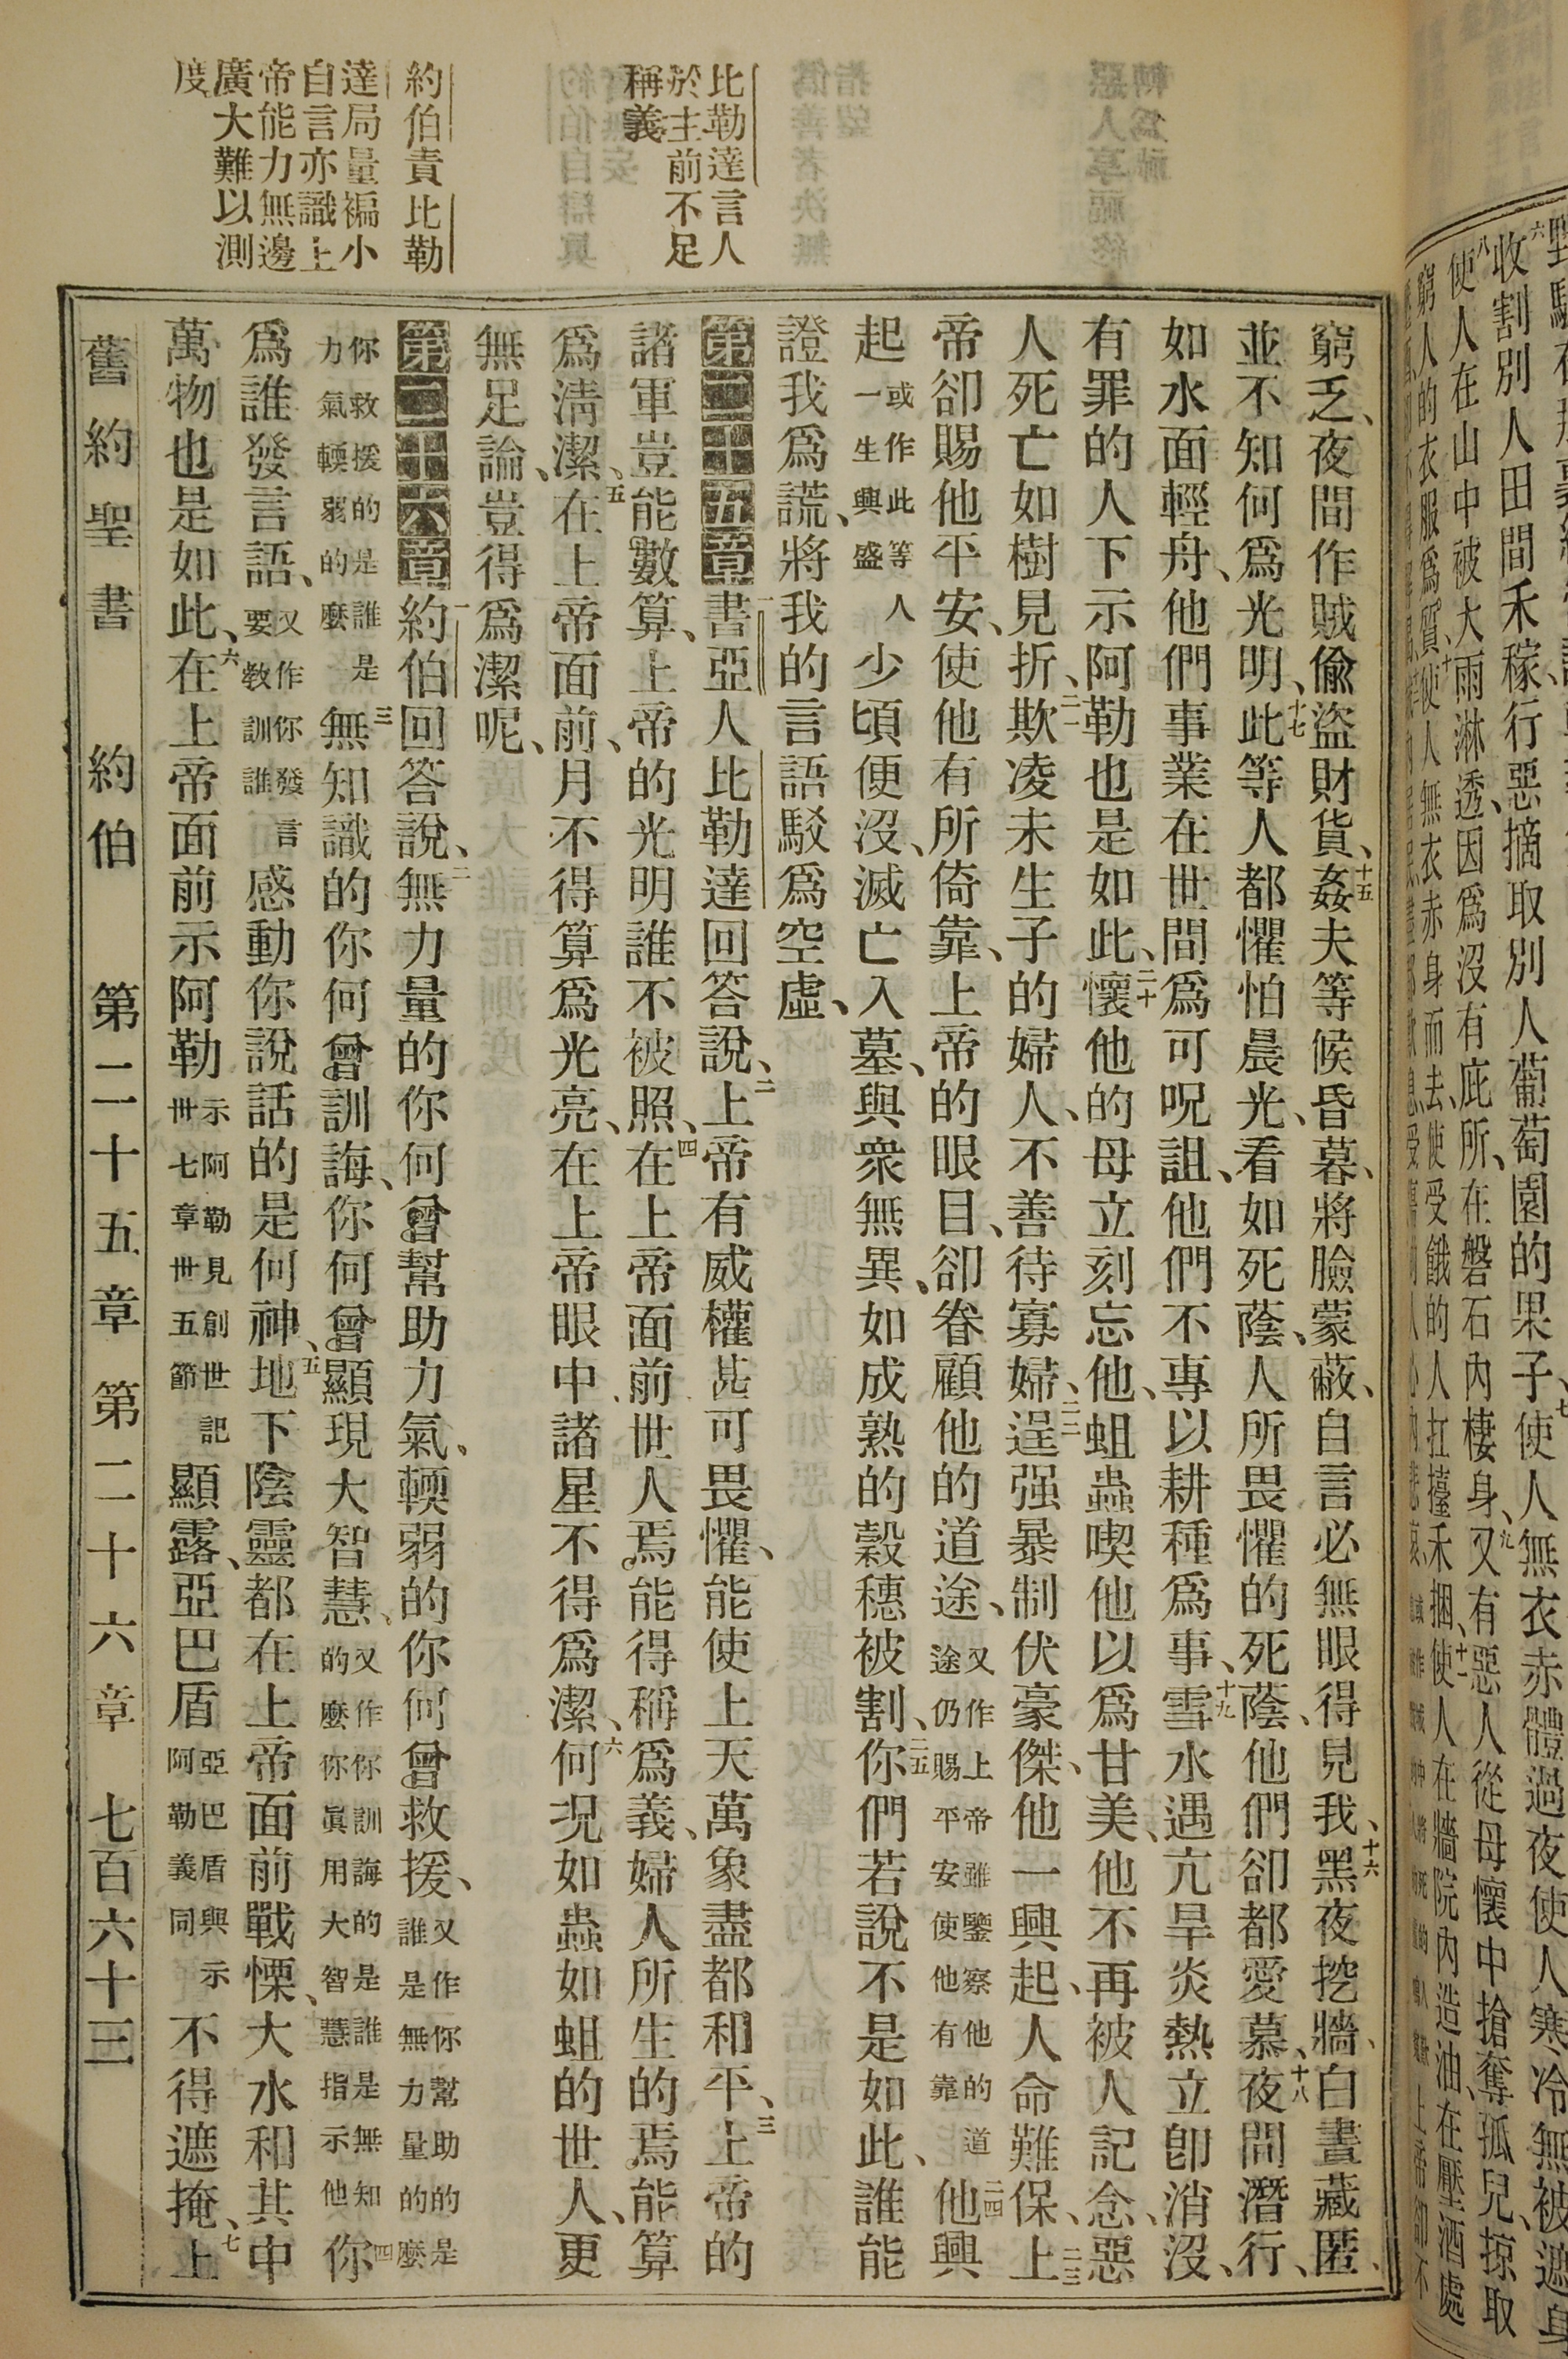 比勒達言人
於主前不足
稱義
約伯責比勒
達局量褊小
自言亦識上
帝能力無邊
廣大難以測
度
窮乏、夜間作賊偸盜財貨、十五姦夫等候昏暮、將臉蒙蔽、自言必無眼得見我、十六黑夜挖牆、白晝藏匿、
並不知何爲光明、十七此等人都懼怕晨光、看如死蔭、人所畏懼的死蔭、他們卻都愛慕、十八夜間潛行、
如水面輕舟、他們事業在世間爲可呪詛、他們不專以耕種爲事、十九雪水遇亢旱炎熱立卽消沒、
有罪的人下示阿勒也是如此、二十懷他的母立刻忘他、蛆蟲喫他以爲甘美、他不再被人記念、惡
人死亡如樹見折、二一欺凌未生子的婦人、不善待寡婦、二二逞强暴制伏豪傑、他一興起、人命難保、二三上
帝卻賜他平安、使他有所倚靠、上帝的眼目、卻眷顧他的道途、又作上帝雖鑒察他的道途仍賜平安使他有靠二四他興
起或作此等人一生興盛少頃便沒、滅亡入墓、與衆無異、如成熟的穀穗被割、二五你們若說不是如此、誰能
證我爲謊、將我的言語駁爲空虛、
第二十五章一書亞人比勒達回答說、二上帝有威權甚可畏懼、能使上天萬象盡都和平、三上帝的
諸軍豈能數算、上帝的光明誰不被照、四在上帝面前世人焉能得稱爲義、婦人所生的焉能算
爲淸潔、五在上帝面前、月不得算爲光亮、在上帝眼中諸星不得爲潔、六何况如蟲如蛆的世人、更
無足論、豈得爲潔呢、
第二十六章一約伯回答說、二無力量的你何曾幫助力氣、輭弱的你何曾救援、又作你幫助的是誰是無力量的麼
你救援的是誰是力氣輭弱的麼三無知識的你何曾訓誨、你何曾顯現大智慧、又作你訓誨的是誰是無知的麼你眞用大智慧指示他四你
爲誰發言語、又作你發言要敎訓誰感動你說話的是何神、五地下陰靈都在上帝面前戰慄、大水和其中
萬物也是如此、六在上帝面前示阿勒示阿勒見創世記卅七章卅五節顯露、亞巴盾亞巴盾與示阿勒義同不得遮掩、七上
舊約聖書 約伯 第二十五章 第二十六章 七百六十三
收割別人田間禾稼、行惡摘取別人葡萄園的果子、七使人無衣赤體過夜、使人寒冷無被遮身
八使人在山中被大雨淋透、因爲沒有庇所、在磐石內棲身、九又有惡人從母懷中搶奪孤兒、掠取
窮人的衣服爲質、十使人無衣赤身而去、使受餓的人扛擡禾捆、十一使人在牆院內造油、在壓酒處